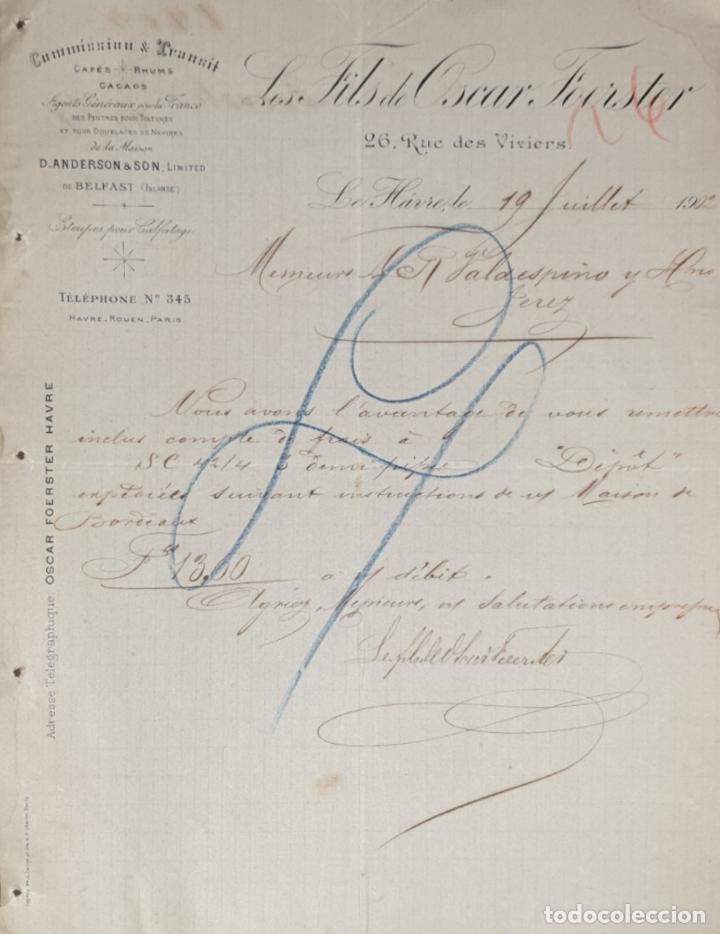 Commission & Transit
CAFÉS - RHUMS
CACAOS
Agents Généraux pour la France
DES FEUTRES POUR TOITURES
ET POUR DOUBLAGES DE NAVIRES
de la Maison
D. ANDERSON & SON, LIMITED
DE BELFAST (IRLANDE)
Etoupes pour Calfatage
TÉLÉPHONE Nº 345
HAVRE_ROUEN_PARIS
Adresse Télégraphique OSCAR FOERSTER HAVRE
Les Fils de Oscar Foerster
26, Rue des Viviers.
Le Hâvre, le 19 Juillet 1902
Messieurs A R Valdespino y Hno
Jerez
Nous avons l'avantage de vous remettre
inclus compte de frais à
SC 42/4 3 demi pipes "Dépôt"
expédiées suivant instructions de v/ Maison de
Bordeaux
Fcs 13,60 à v/ débit.
Agréez, Messieurs, n/ salutations empressées
Les fils de Oscar Foerster
todocoleccion